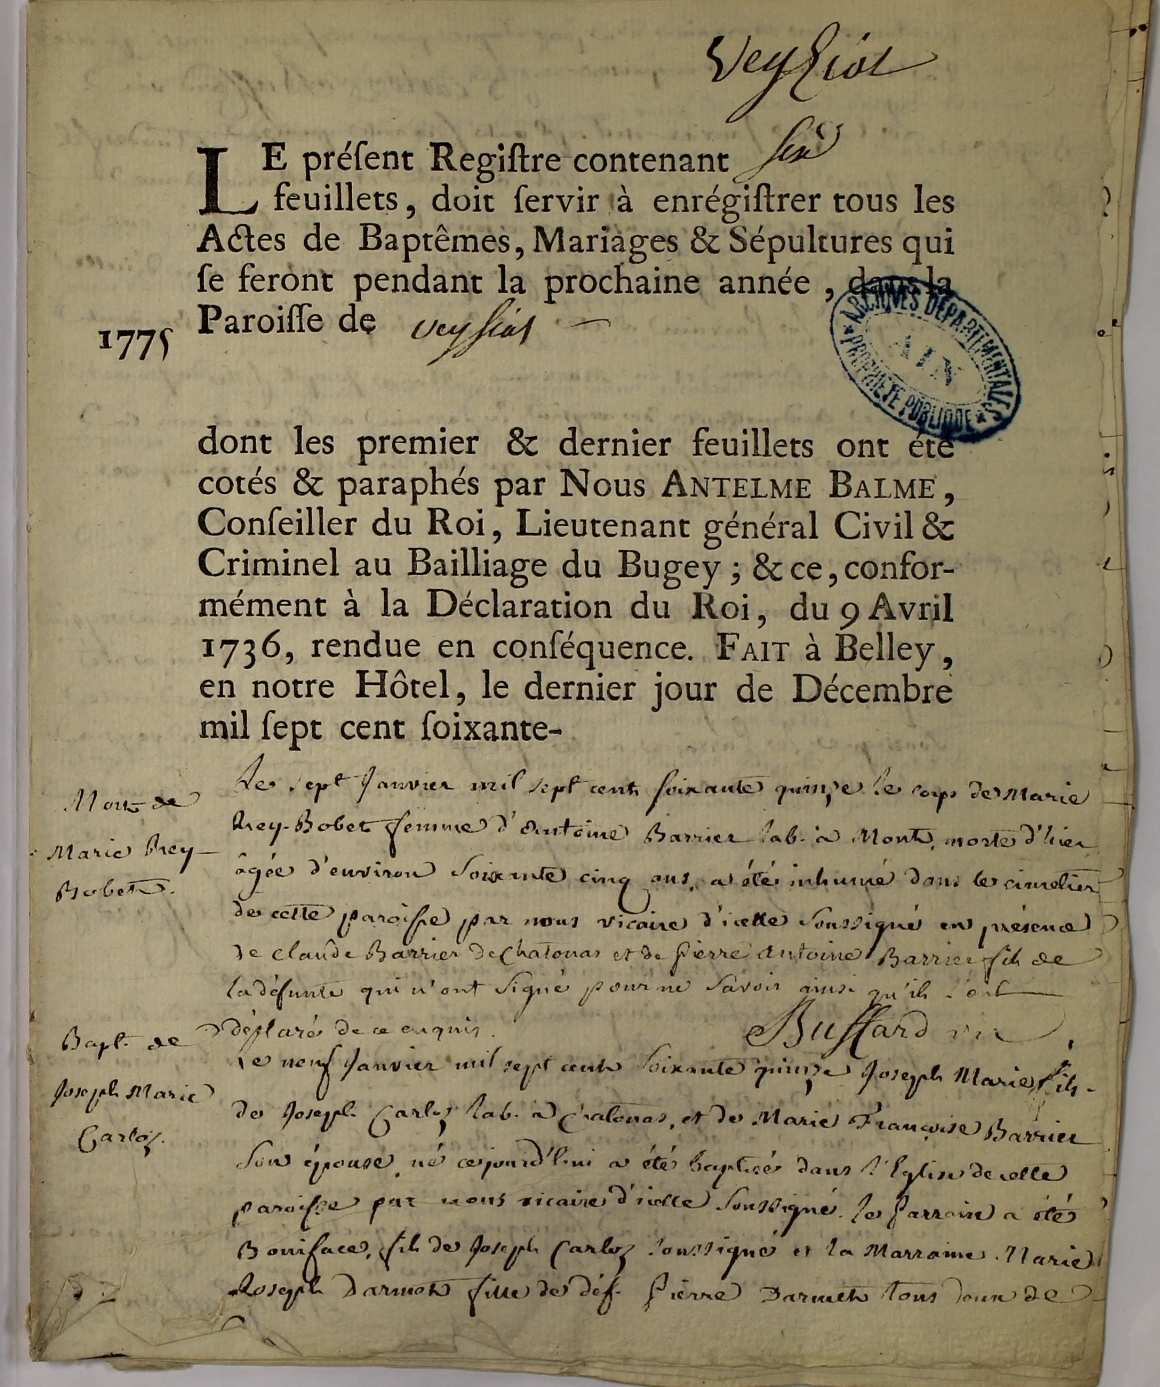 Veyziat
LE préſent Regiſtre contenant six
feuillets, doit ſervir à enrégiſtrer tous les
Actes de Baptêmes, Mariages & Sépultures qui
ſe feront pendant la prochaine année, dans la
Paroiſſe de veyziat
1775
ARCHIVES DÉPARTEMENTALES
AIN
PROPRIÉTÉ PUBLIQUE
dont les premier & dernier feuillets ont été
cotés & paraphés par Nous ANTELME BALME,
Conſeiller du Roi, Lieutenant général Civil &
Criminel au Bailliage du Bugey; & ce, confor-
mément à la Déclaration du Roi, du 9 Avril
1736, rendue en conſéquence. FAIT à Belley,
en notre Hôtel, le dernier jour de Décembre
mil ſept cent ſoixante-
Mort de
Marie Rey-
Bobet.
Le sept Janvier mil sept cent soixante quinze le corps de Marie
Rey-Bobet femme d'Antoine Barrier lab. à Mont, morte d'hier
âgée d'environ soixante cinq ans, a été inhumé dans le cimetier
de cette paroisse par nous vicaire d'icelle soussigné en présence
de Claude Barrier de Chatonas et de Pierre Antoine Barrier fils de
la défunte qui n'ont signé pour ne savoir ainsi qu'ils l'ont
déclaré de ce enquis.
Buffard vic
Bapt. de
Joseph Marie
Carloz.
Le neuf Janvier mil sept cent soixante quinze Joseph Marie fils
de Joseph Carloz lab. à Chatonas, et de Marie Françoise Barrier
son épouse, né cejourd'hui a été baptisé dans l'Eglise de cette
paroisse par nous vicaire d'icelle soussigné. le parrain a été
Boniface, fils de Joseph Carloz soussigné et la Marraine Marie
Joseph Darmet fille de déf. Pierre Darmet tous deux de